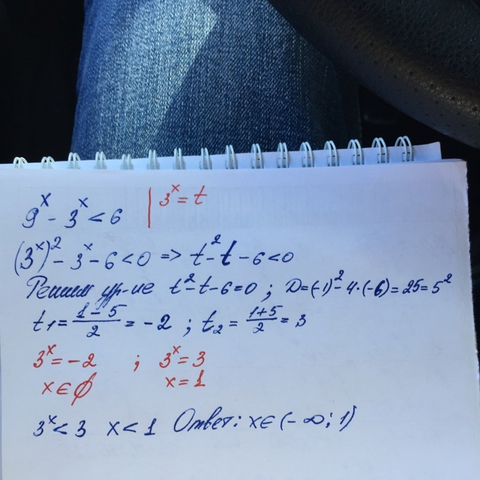 9^x - 3^x < 6 | 3^x = t
(3^x)^2 - 3^x - 6 < 0 => t^2 - t - 6 < 0
Решим ур-ие t^2 - t - 6 = 0 ; D = (-1)^2 - 4·(-6) = 25 = 5^2
t1 = (1-5)/2 = -2 ; t2 = (1+5)/2 = 3
3^x = -2 ; 3^x = 3
x ∈ ∅ x = 1
3^x < 3 x < 1 Ответ: x ∈ (-∞; 1)